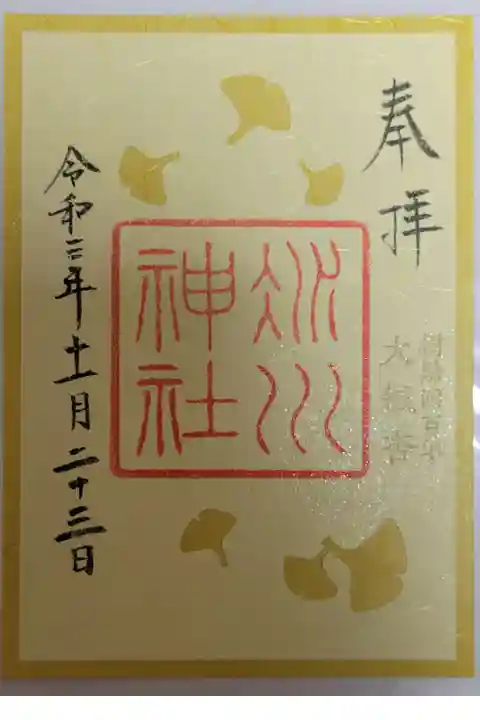 奉拝
氷川
神社
令和三年十一月二十三日